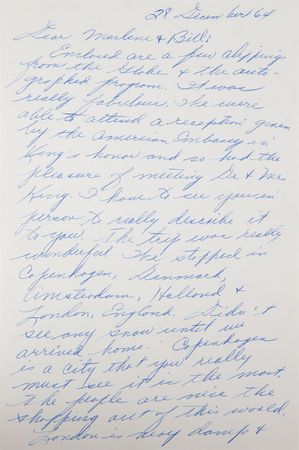 28 December 64
Dear Marlene & Bill:
Enclosed are a few clippings
from the Globe & the auto-
graphed program. It was
really fabulous. We were
able to attend a reception given
by the American Embassy in
King's honor and so had the
pleasure of meeting Dr & Mrs
King. I have to see you in
person to really describe it
to you. The trip was really
wonderful. We stopped in
Copenhagen, Denmark,
Amsterdam, Holland &
London, England. Didn't
see any snow until we
arrived home. Copenhagen
is a city that you really
must see it is the most.
The people are nice the
shopping out of this world.
London is very damp &